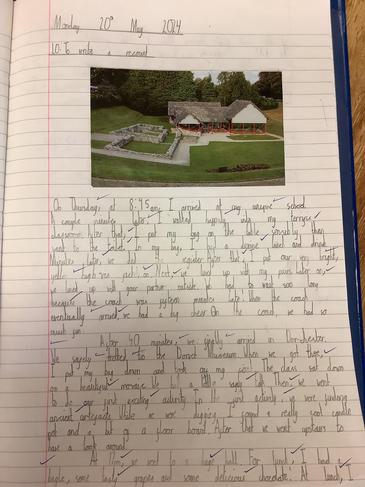 Monday 20th May 2024
LO: To write a recount
On Thursday, at 8:45am, I arrived at my unique school.
A couple minutes later, I walked happily into my terrific
classroom. After that, I put my bag on the table sensibly then
went to the toilet. In my bag, I had a lunch and drink.
Minutes later, we did the register. After that I put our very bright,
yellow high vis jacket on. Next, we lined up with my pairs later on,
we lined up with your partner outside, we had to wait soo long
because the coach was fifteen minutes late. When the coach
eventually arrived, we had a big cheer. On the coach, we had so
much fun.
After 40 minutes, we finally arrived in Dorchester.
We safely walked to the Dorset Museum. When we got there,
I put my bag down and took my coat. The class sat down
on a beautiful mosaic. We had a talk. Then, we went
to do our first exciting activity. In the first activity, we were finding
ancient artefacts. While we were digging, I found a really cool candle
pot and a bit of a floor board. After that we went upstairs to
have a look around.
At 12pm, we went to a huge hall. For lunch, I had a
bagle, some tasty grapes and some delicious chocolate. At lunch, I